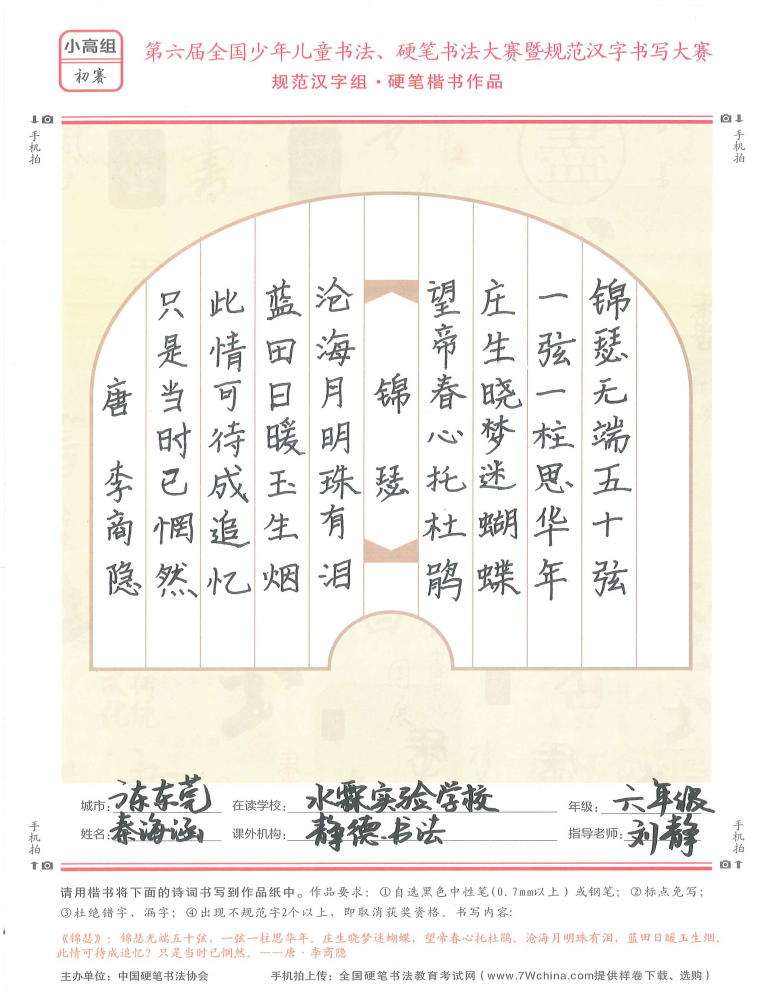 小高组
初赛
第六届全国少年儿童书法、硬笔书法大赛暨规范汉字书写大赛
规范汉字组·硬笔楷书作品
手机拍
手机拍
锦瑟无端五十弦
一弦一柱思华年
庄生晓梦迷蝴蝶
望帝春心托杜鹃
锦瑟
沧海月明珠有泪
蓝田日暖玉生烟
此情可待成追忆
只是当时已惘然
唐 李商隐
城市: 东莞 在读学校: 水霖实验学校 年级: 六年级
姓名: 秦海涵 课外机构: 静德书法 指导老师: 刘静
手机拍
手机拍
请用楷书将下面的诗词书写到作品纸中。作品要求: ①自选黑色中性笔(0.7mm以上)或钢笔; ②标点免写;
③杜绝错字、漏字; ④出现不规范字2个以上, 即取消获奖资格。书写内容:
《锦瑟》: 锦瑟无端五十弦, 一弦一柱思华年。庄生晓梦迷蝴蝶, 望帝春心托杜鹃。沧海月明珠有泪, 蓝田日暖玉生烟。
此情可待成追忆? 只是当时已惘然。——唐·李商隐
主办单位: 中国硬笔书法协会 手机拍上传: 全国硬笔书法教育考试网(www.7Wchina.com提供样卷下载、选购)